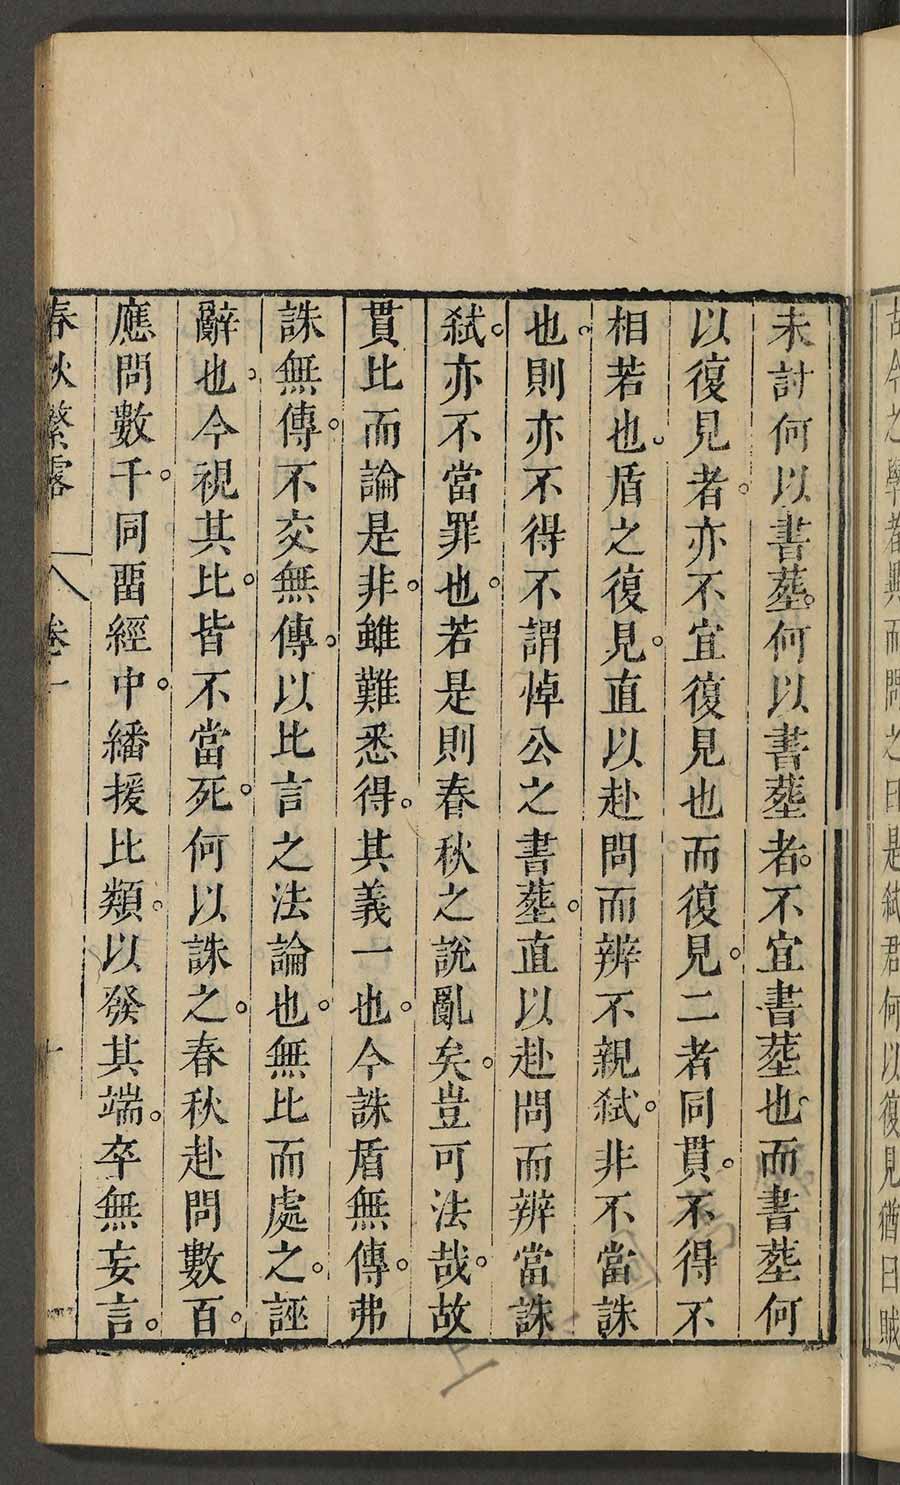 古今之學者異而問之曰是弑君何以復見猶曰賊
未討何以書葬。何以書葬者。不宜書葬也。而書葬何
以復見者。亦不宜復見也而復見。二者同貫。不得不
相若也。盾之復見。直以赴問而辨不親弑。非不當誅
也。則亦不得不謂悼公之書葬。直以赴問而辨當誅
弑。亦不當罪也。若是則春秋之說亂矣。豈可法哉。故
貫比而論是非。雖難悉得。其義一也。今誅盾無傳。弗
誅無傳。不交無傳。以比言之法論也。無比而處之。誣
辭也。今視其比。皆不當死。何以誅之。春秋赴問數百。
應問數千。同畱經中。繙援比類。以發其端。卒無妄言。
春秋繁露 卷一 十